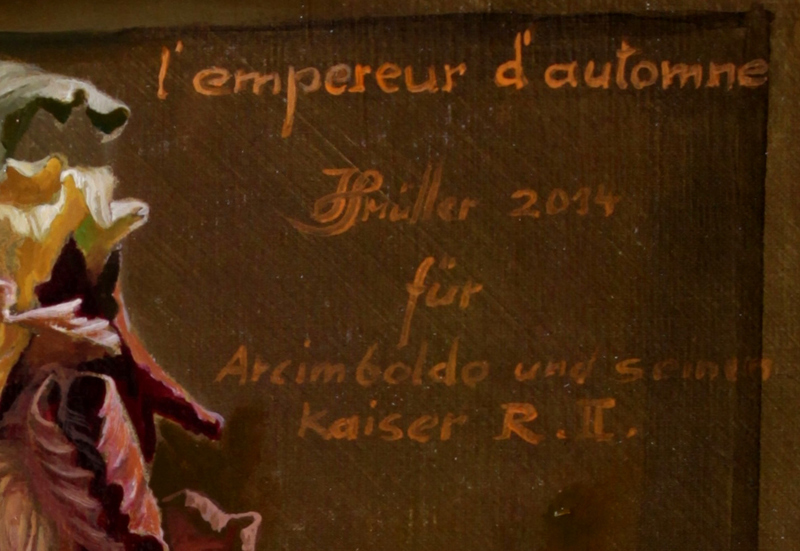 l'empereur d'automne
Müller 2014
für
Arcimboldo und seinen
Kaiser R. II.